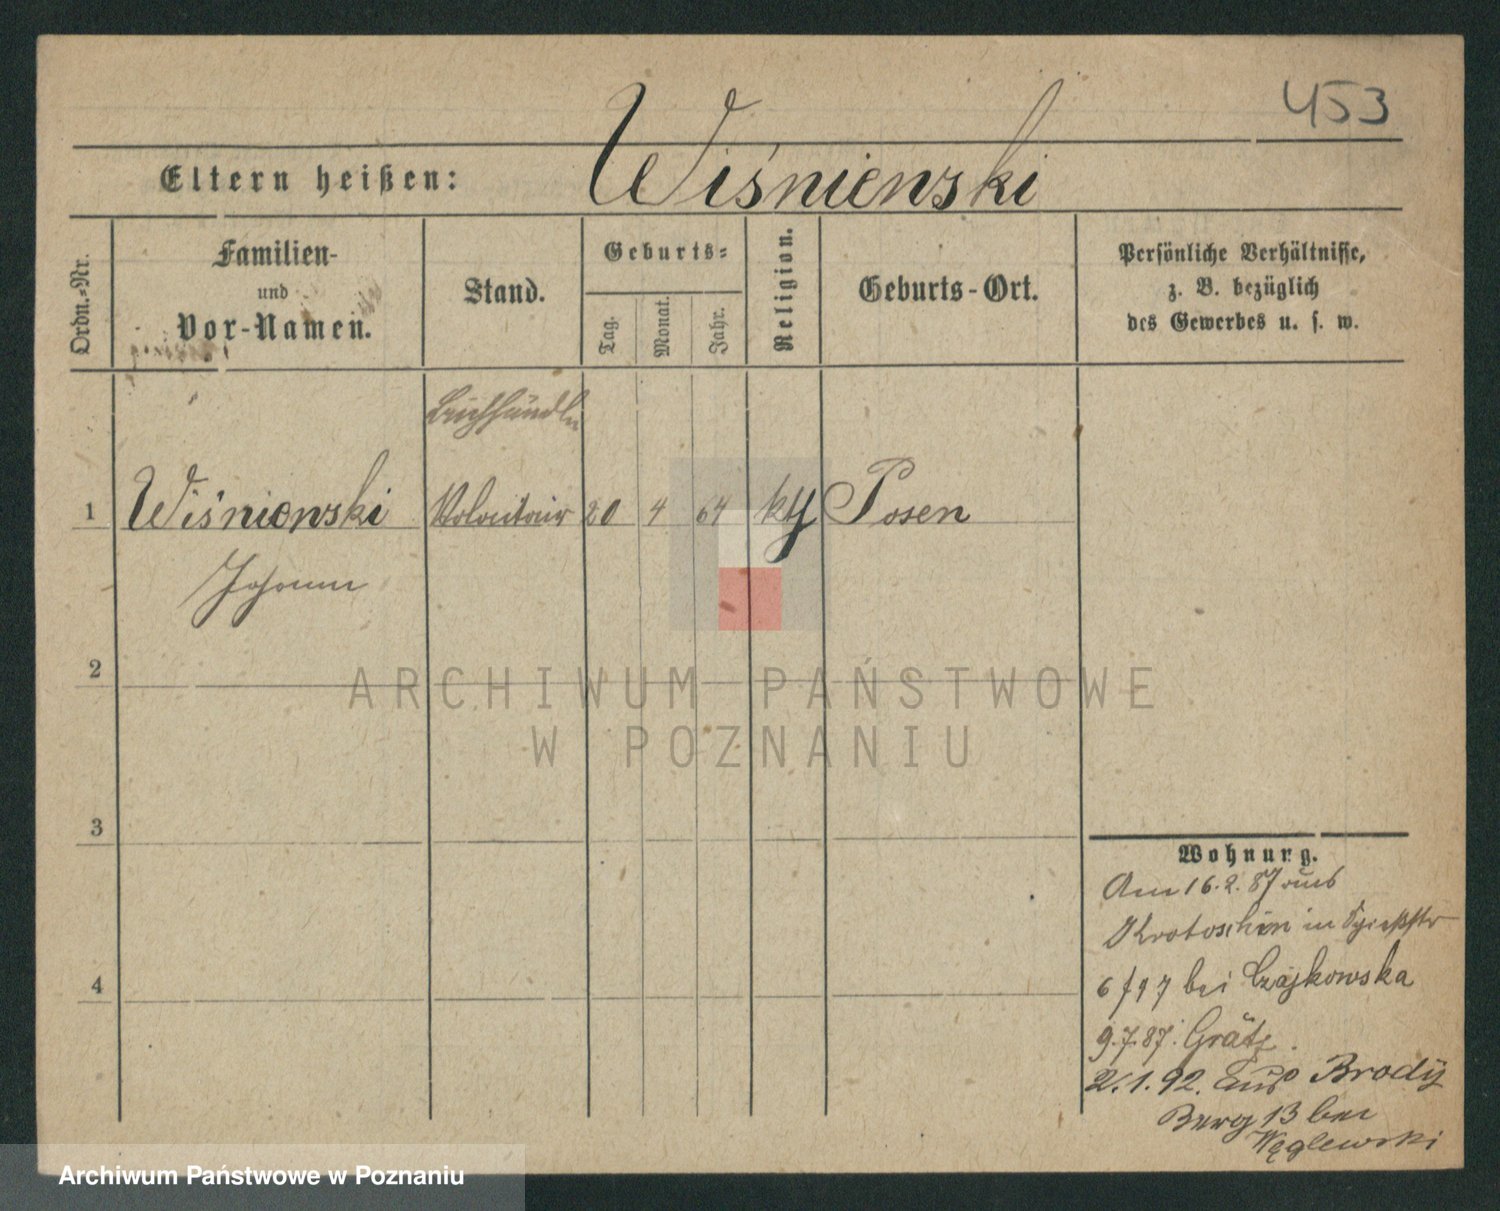 453
Eltern heißen: Wiśniewski
Ordn.-Nr.
Familien-
und
Vor-Namen.
Stand.
Geburts-
Tag.
Monat.
Jahr.
Religion.
Geburts-Ort.
Persönliche Verhältnisse,
z. B. bezüglich
des Gewerbes u. s. w.
1 Wiśniewski Volontair 20 4 64 kth Posen
Johann
2
3
4
ARCHIWUM PAŃSTWOWE
W POZNANIU
Wohnung.
Am 16.2.87 aus
Krotoschin in
bei Czajkowska
9.7.87. Grätz.
2.1.92. aus Brody
Berg 13 bei
Węglewski
Archiwum Państwowe w Poznaniu